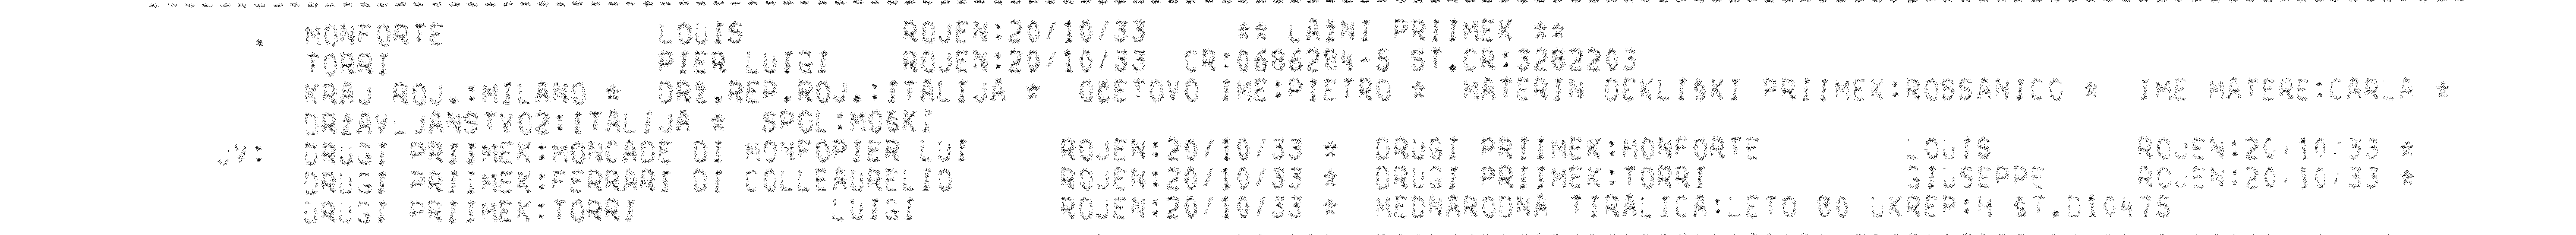 . MONFORTE LOUIS ROJEN:20/10/33 ** LAŽNI PRIIMEK **
TORRI PIER LUIGI ROJEN:20/10/33 CR:0686284-5 ŠT.CR:3282203
KRAJ ROJ.:MILANO * DRŽ.REP.ROJ.:ITALIJA * OČETOVO IME:PIETRO * MATERIN DEKLIŠKI PRIIMEK:ROSSANICO * IME MATERE:CARLA *
DRŽAVLJANSTVO2:ITALIJA * SPOL:MOŠKI
UV: DRUGI PRIIMEK:MONCADE DI MONFOPIER LUI ROJEN:20/10/33 * DRUGI PRIIMEK:MONFORTE LOUIS ROJEN:20/10/33 *
DRUGI PRIIMEK:FERRARI DI COLLEAURELIO ROJEN:20/10/33 * DRUGI PRIIMEK:TORRI GIUSEPPE ROJEN:20/10/33 *
DRUGI PRIIMEK:TORRI LUIGI ROJEN:20/10/33 * MEDNARODNA TIRALICA:LETO 80 UKREP:H ŠT.D10475